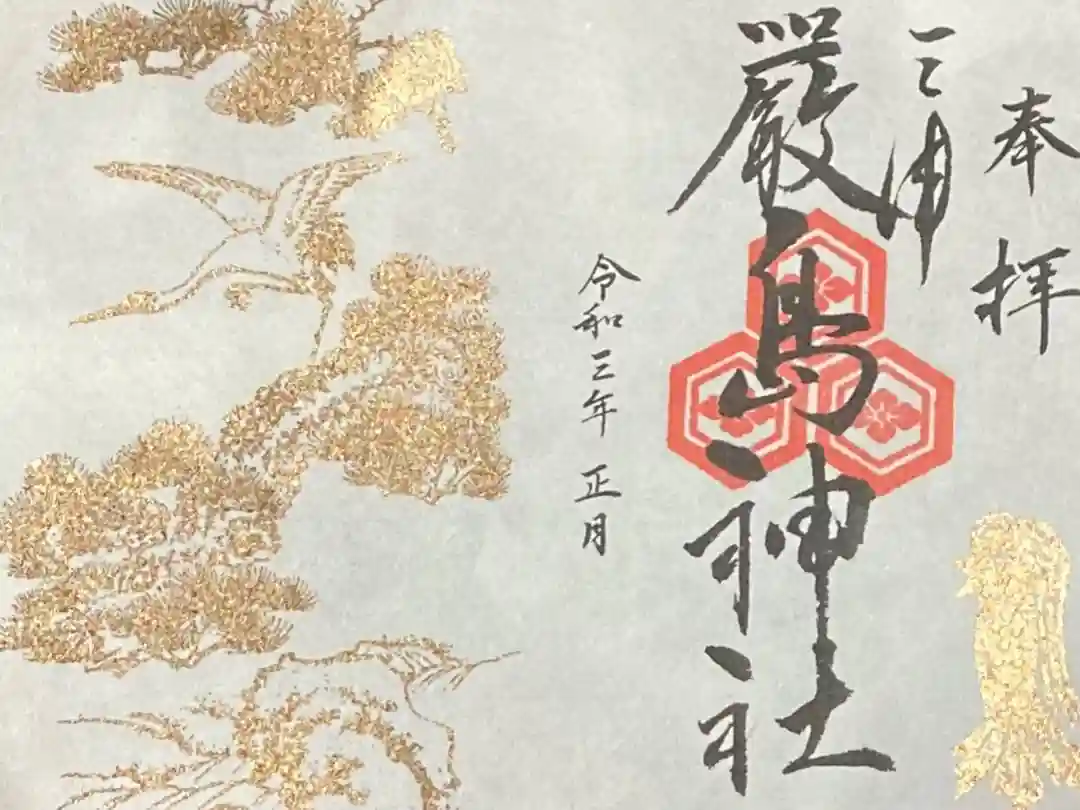 奉拝
嚴島神社
令和三年 正月